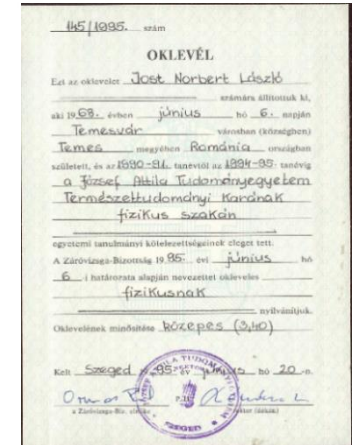 145/1995. szám
OKLEVÉL
Ezt az oklevelet Jost Norbert László
számára állítottuk ki,
aki 1969. évben június hó 6. napján
Temesvár városban (községben)
Temes megyében Románia országban
született, és az 1990-91. tanévtől az 1994-95. tanévig
a József Attila Tudományegyetem
Természettudományi Karának
fizikus szakán
egyetemi tanulmányi kötelezettségeinek eleget tett.
A Záróvizsga-Bizottság 1995. évi június hó
6-i határozata alapján nevezettet okleveles
fizikusnak
nyilvánítjuk.
Oklevelének minősítése közepes (3,40)
Kelt Szeged 1995. év június hó 20-n.
P.H.
a Záróvizsga-Biz. elnöke
SZEGED